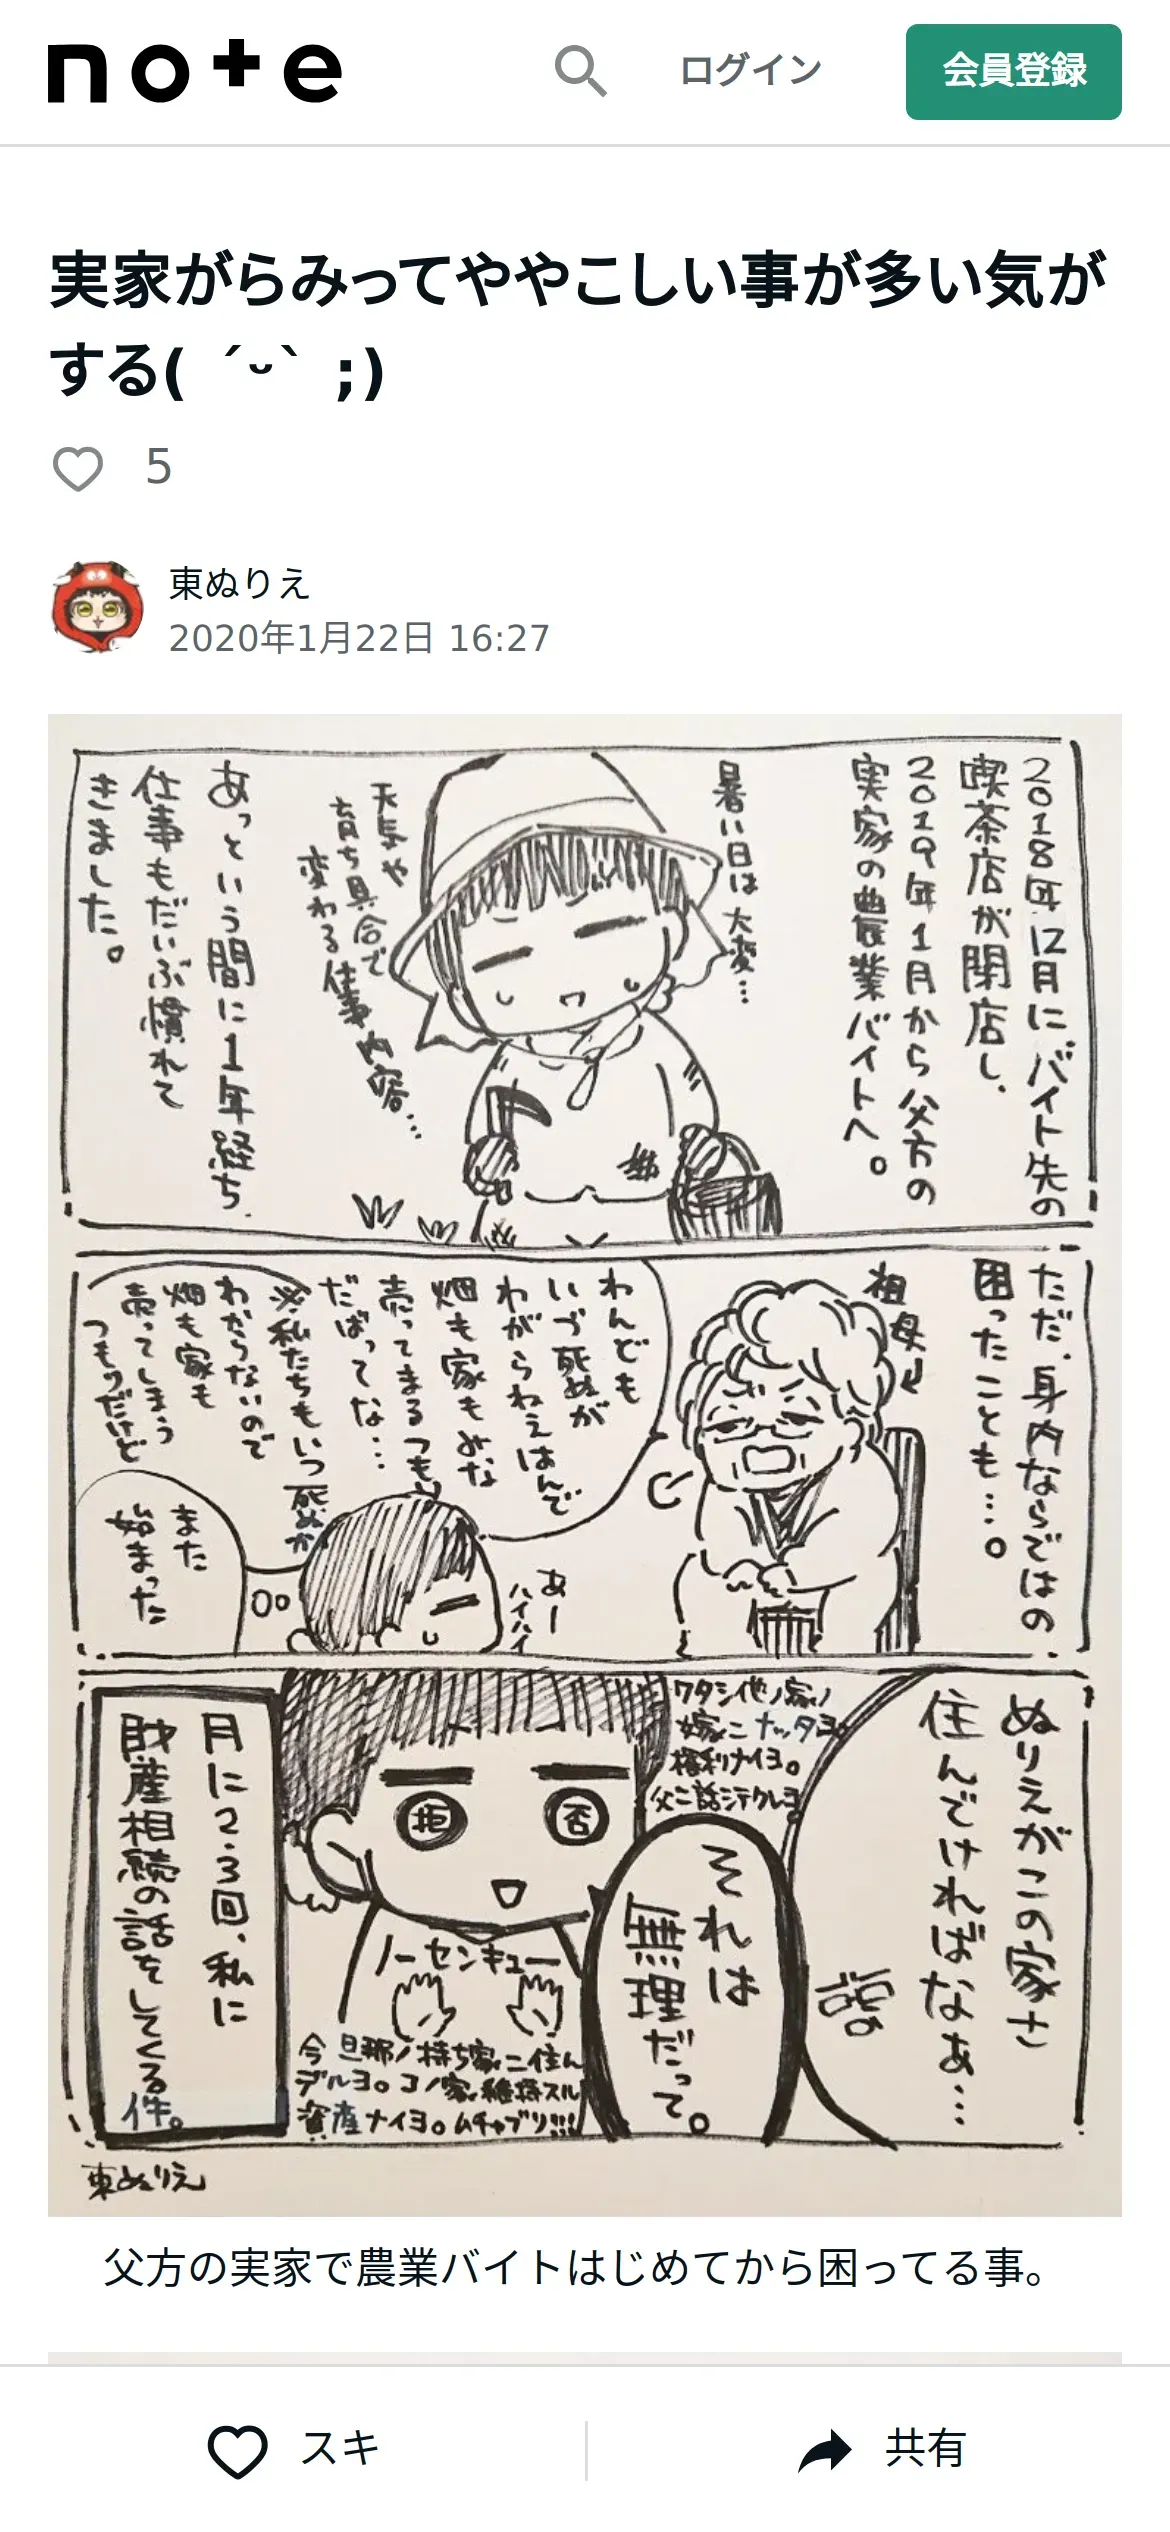 note
ログイン
会員登録
実家がらみってややこしい事が多い気が
する( ´ᵕ` ;)
5
東ぬりえ
2020年1月22日 16:27
2018年12月にバイト先の
喫茶店が閉店し、
2019年1月から父方の
実家の農業バイトへ。
暑い日は大変…
天気や
育ち具合で
変わる仕事内容…
あっという間に1年経ち、
仕事もだいぶ慣れて
きました。
ただ、身内ならではの
困ったことも…。
祖母
わんども
いづ死ぬが
わがらねえはんで
畑も家もみな
売ってまるつもり
だばってな…
※私たちもいつ死ぬか
わからないので
畑も家も
売ってしまう
つもりだけど
あー
ハイハイ
また
始まった
ぬりえがこの家さ
住んでければなぁ…
ワタシ他ノ家ノ
嫁ニナッタヨ。
権利ナイヨ。
父ニ話シテクレヨ
それは
無理だって。
拒
否
ノーセンキュー
今旦那ノ持ち家ニ住ん
デルヨ。コノ家維持スル
資産ナイヨ。ムチャブリ!!!
月に2.3回、私に
財産相続の話をしてくる件。
東ぬりえ
父方の実家で農業バイトはじめてから困ってる事。
スキ
共有